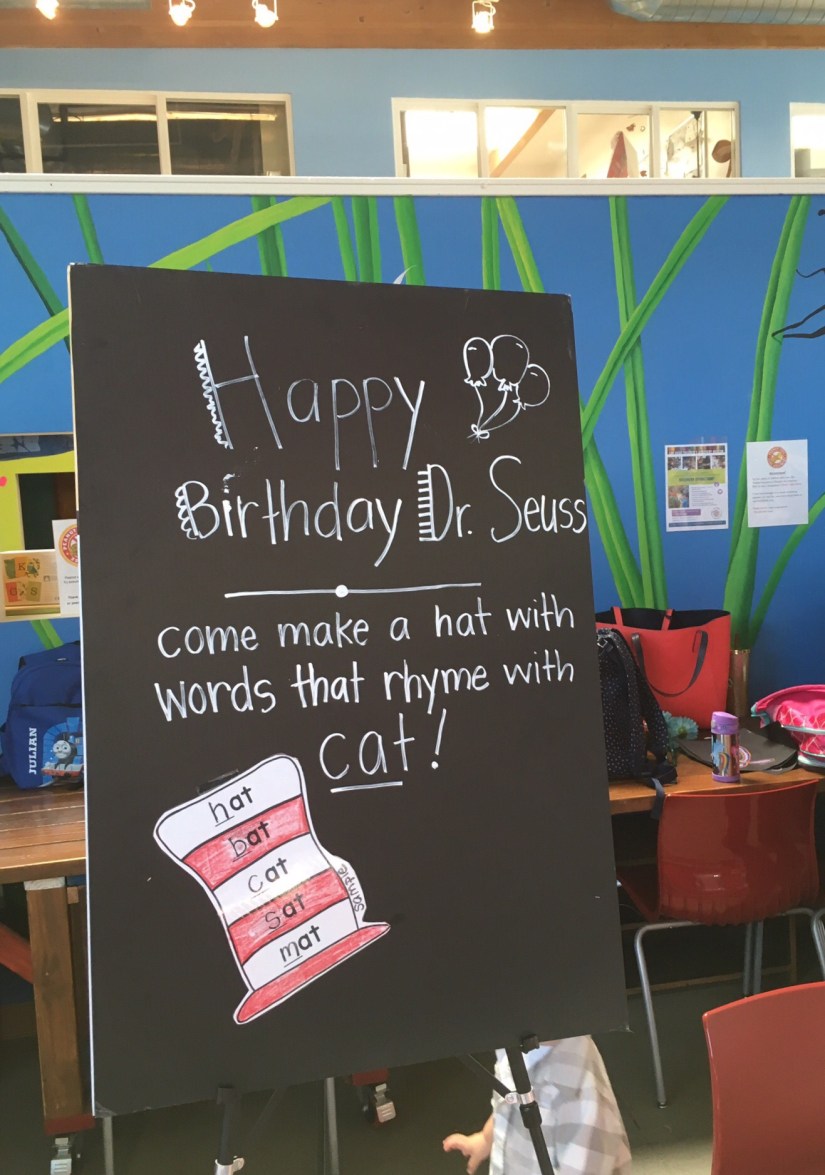 Happy
Birthday Dr. Seuss
come make a hat with
words that rhyme with
cat!
hat
bat
cat
sat
mat
sample
JULIAN